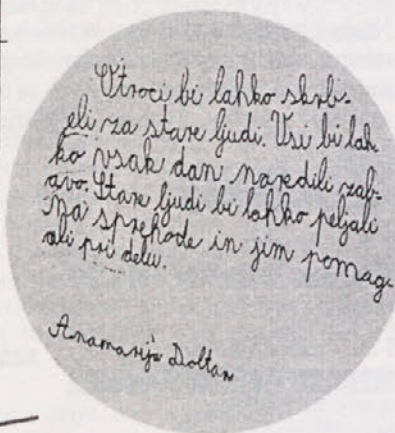 Otroci bi lahko skrbi-
eli za stare ljudi. Vsi bi lah-
ko vsak dan naredili zab-
avo. Stare ljudi bi lahko peljali
na sprehode in jim pomag-
ali pri delu.
Anamarija Doltar